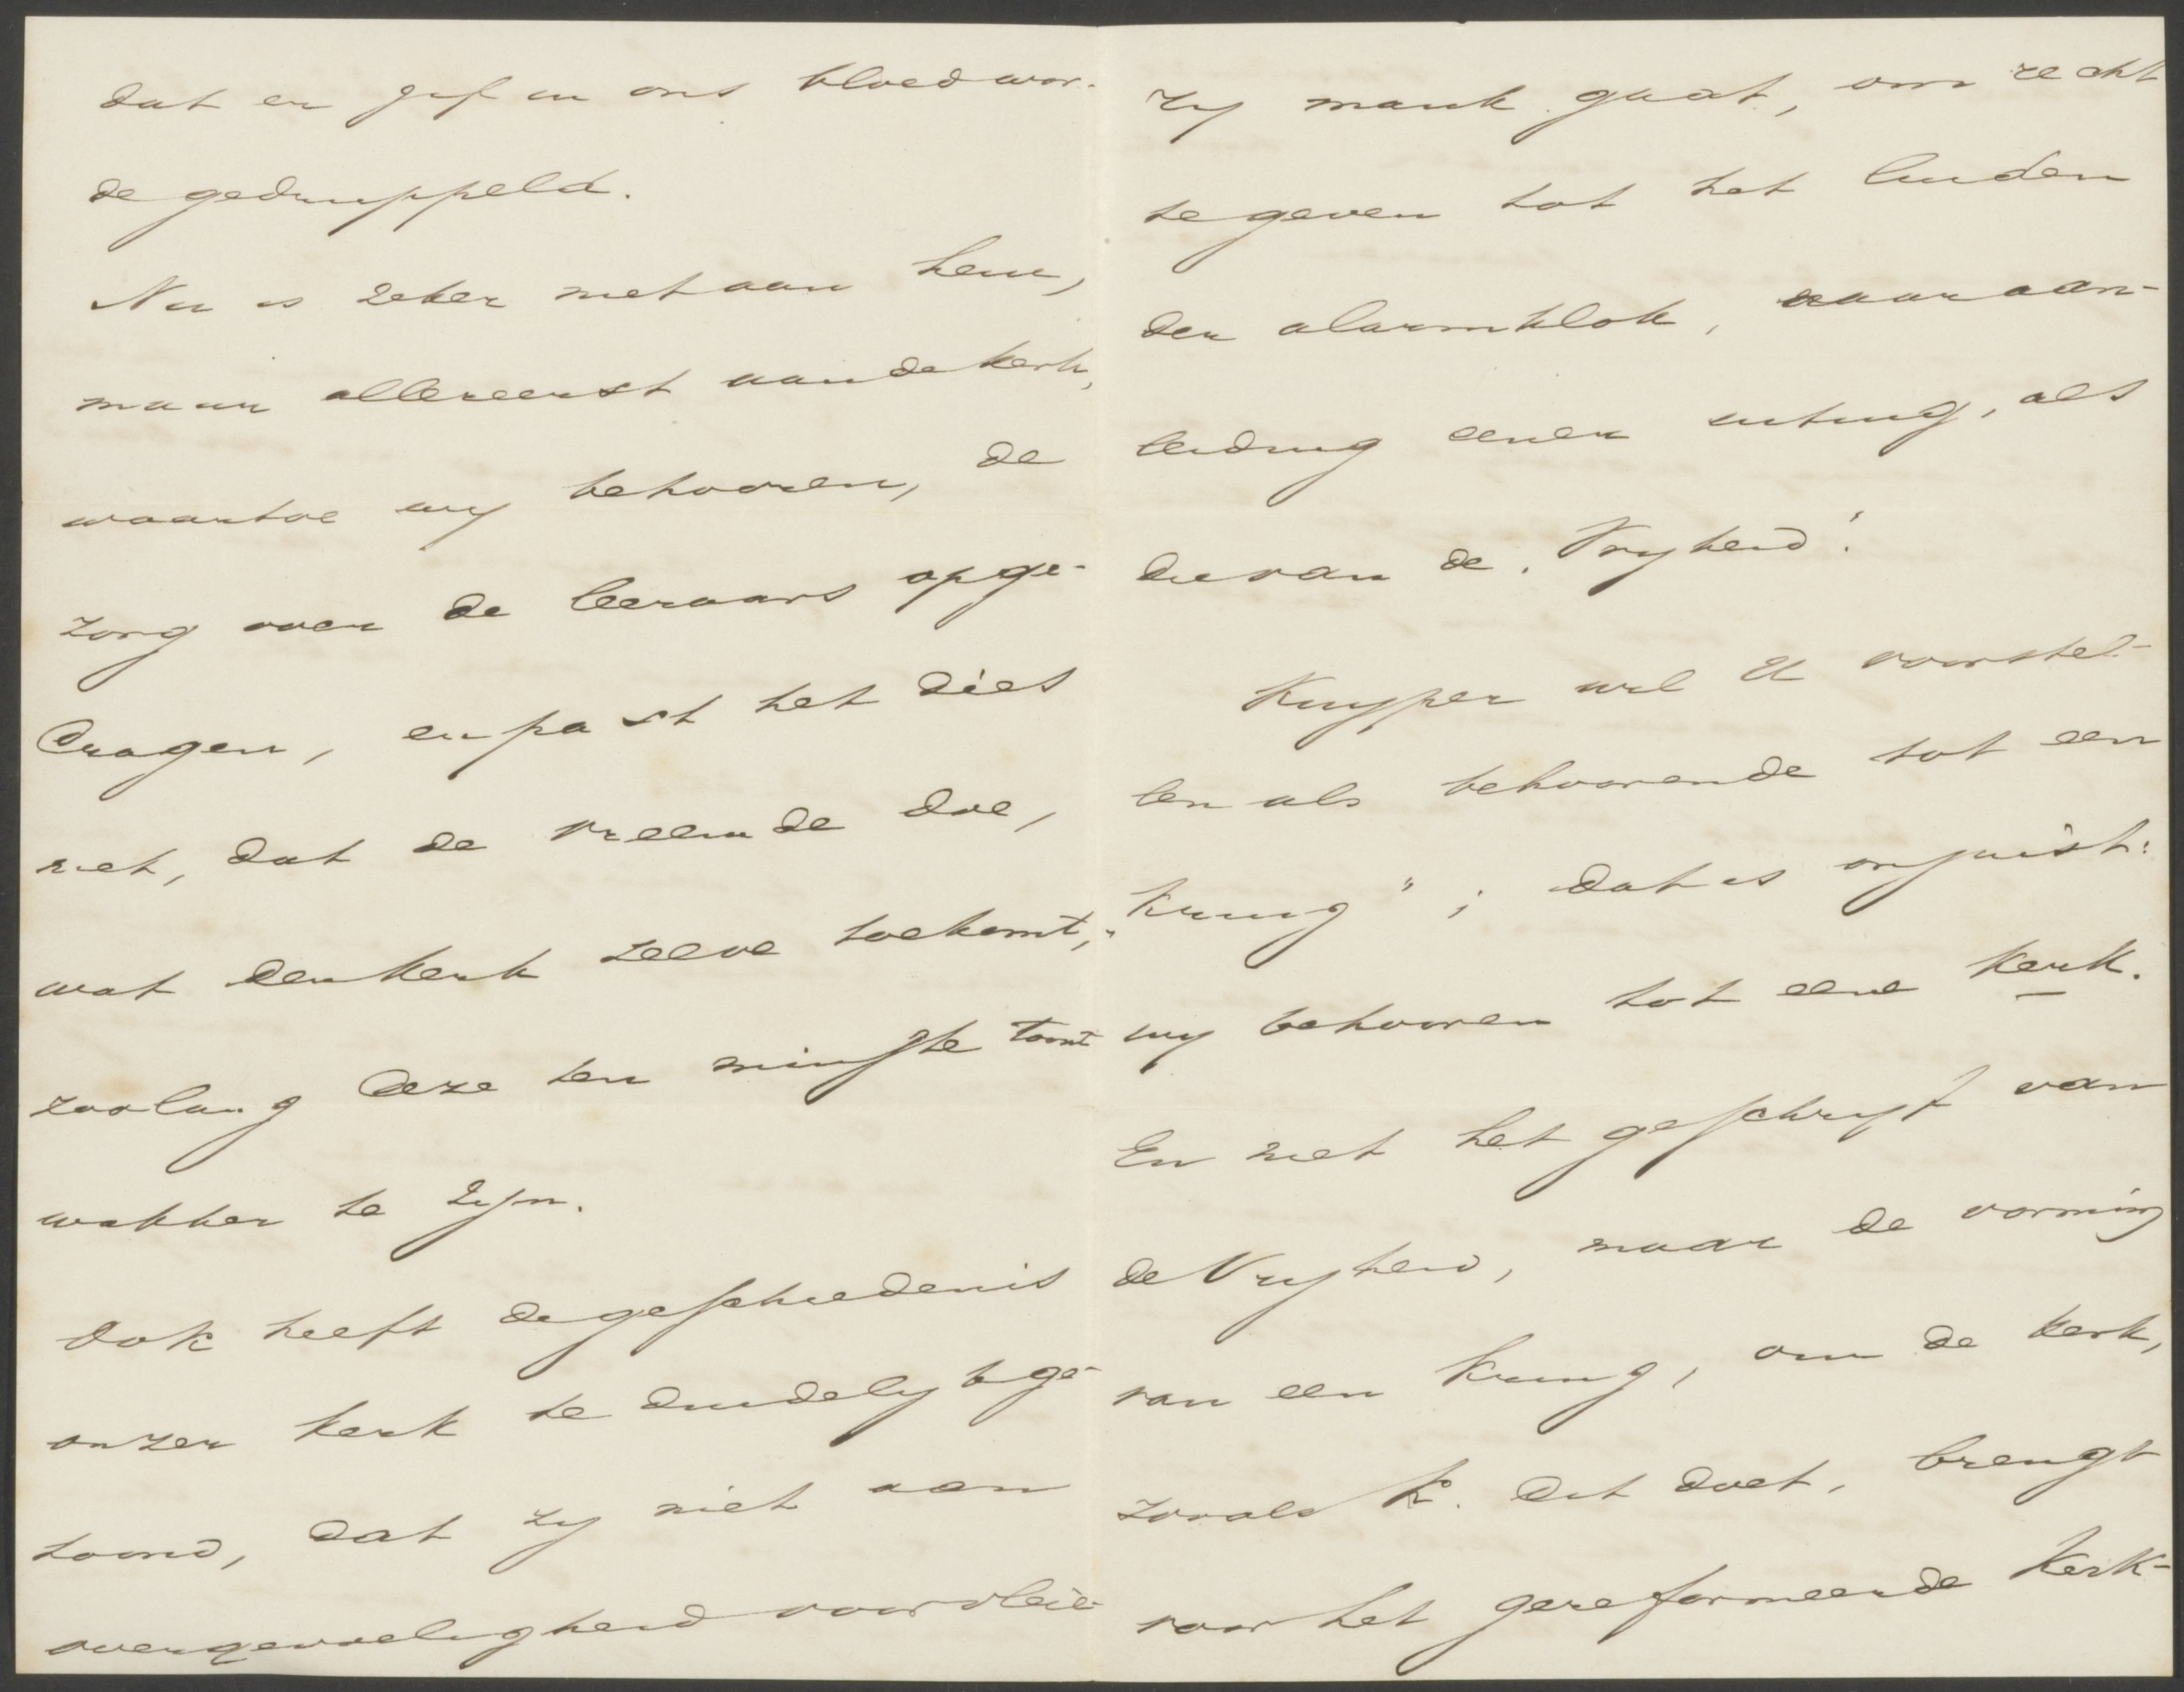 dat er gif in ons bloed wor-
de gedruppeld.
Nu is zeker niet aan hem,
maar allereerst aan de kerk,
waartoe wy behooren, de
zorg over de leeraars opge-
dragen, en past het dies
niet, dat de vreemde doe,
wat der kerk zelve toekomt,
zoolang deze ten minste toont
wakker te zyn.
Ook heeft de geschiedenis
onzer kerk te duidelyk ge-
toond, dat zy niet aan
overgevoeligheid voor vleie-
zy mank gaat, om recht
te geven tot het luiden
der alarmklok, naar aan-
leiding eener uiting, als
die van de "Vryheid".
Kuyper wil U voorstel-
len als behoorende tot een
"kring"; dat is onjuist:
wy behooren tot eene kerk.
En niet het geschryf van
de Vryheid, maar de vorming
van een kring, om de kerk,
zooals K. dit doet, brengt
voor het gereformeerde kerk-